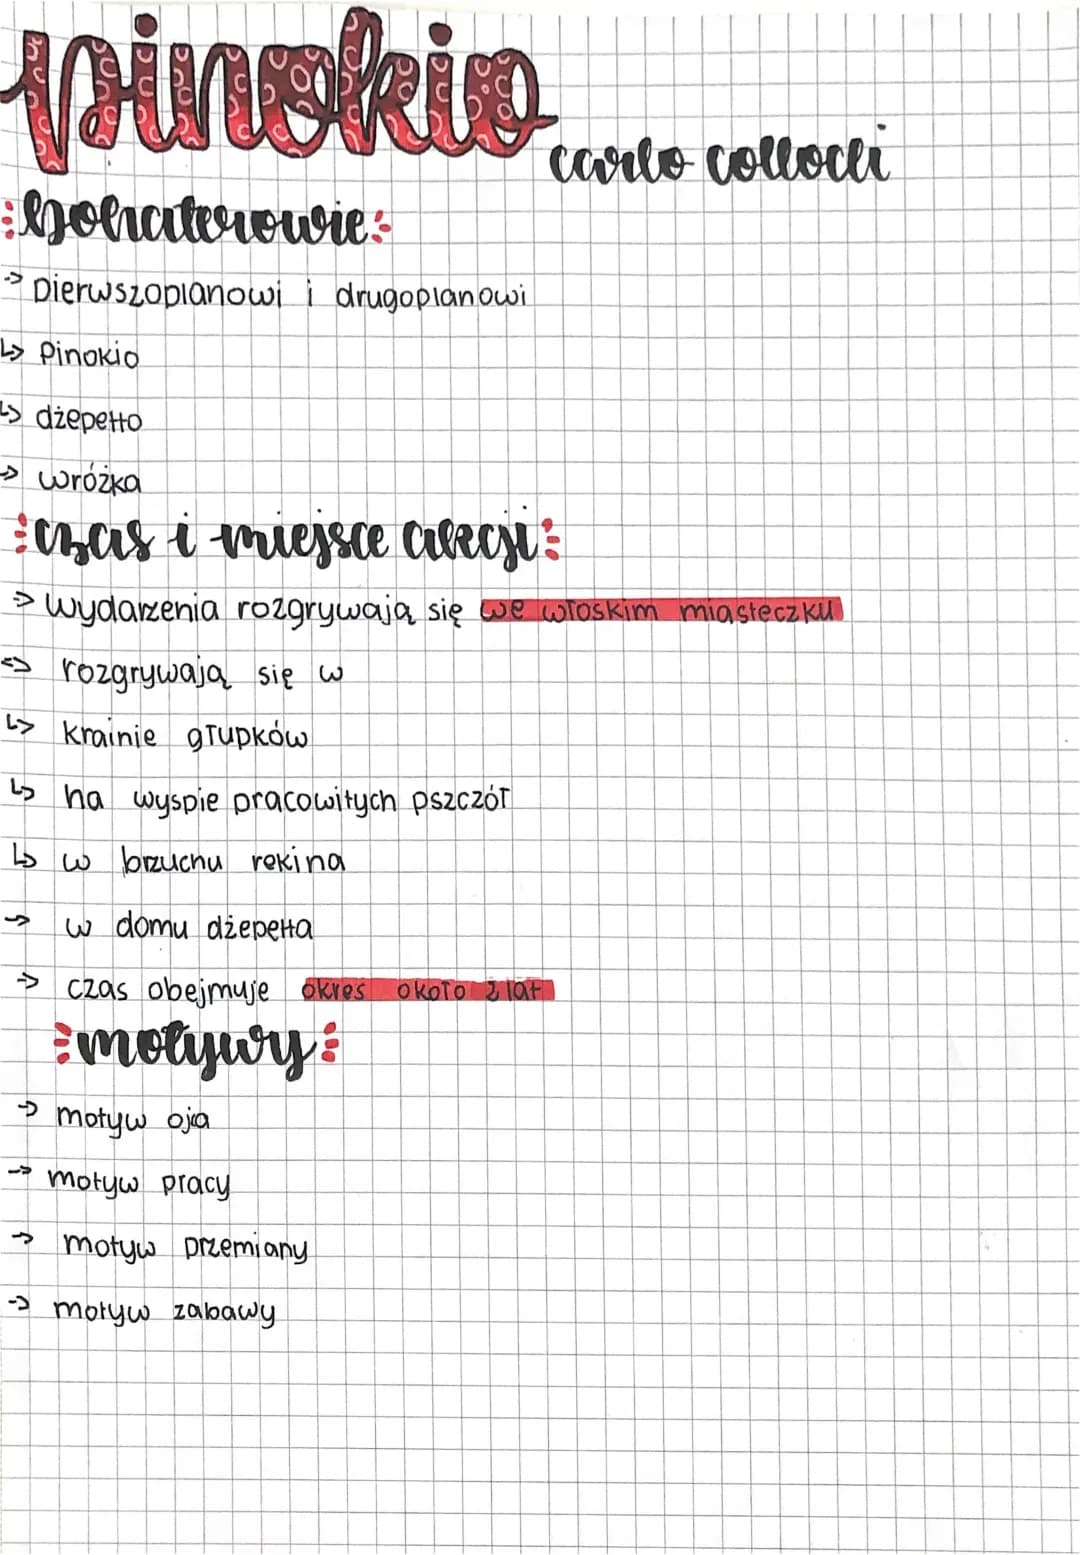 pinokio
carlo collodi
bohaterowie
-> pierwszoplanowi i drugoplanowi
↳ Pinokio
↳ dżepetto
-> wróżka
czas i miejsce akcji
=> wydarzenia rozgrywają się we włoskim miasteczku
=> rozgrywają się w
↳ krainie głupków
↳ na wyspie pracowitych pszczół
↳ w brzuchu rekina
-> w domu dżepetta
-> czas obejmuje okres około 2 lat
motywy
-> motyw oja
-> motyw pracy
-> motyw przemiany
-> motyw zabawy